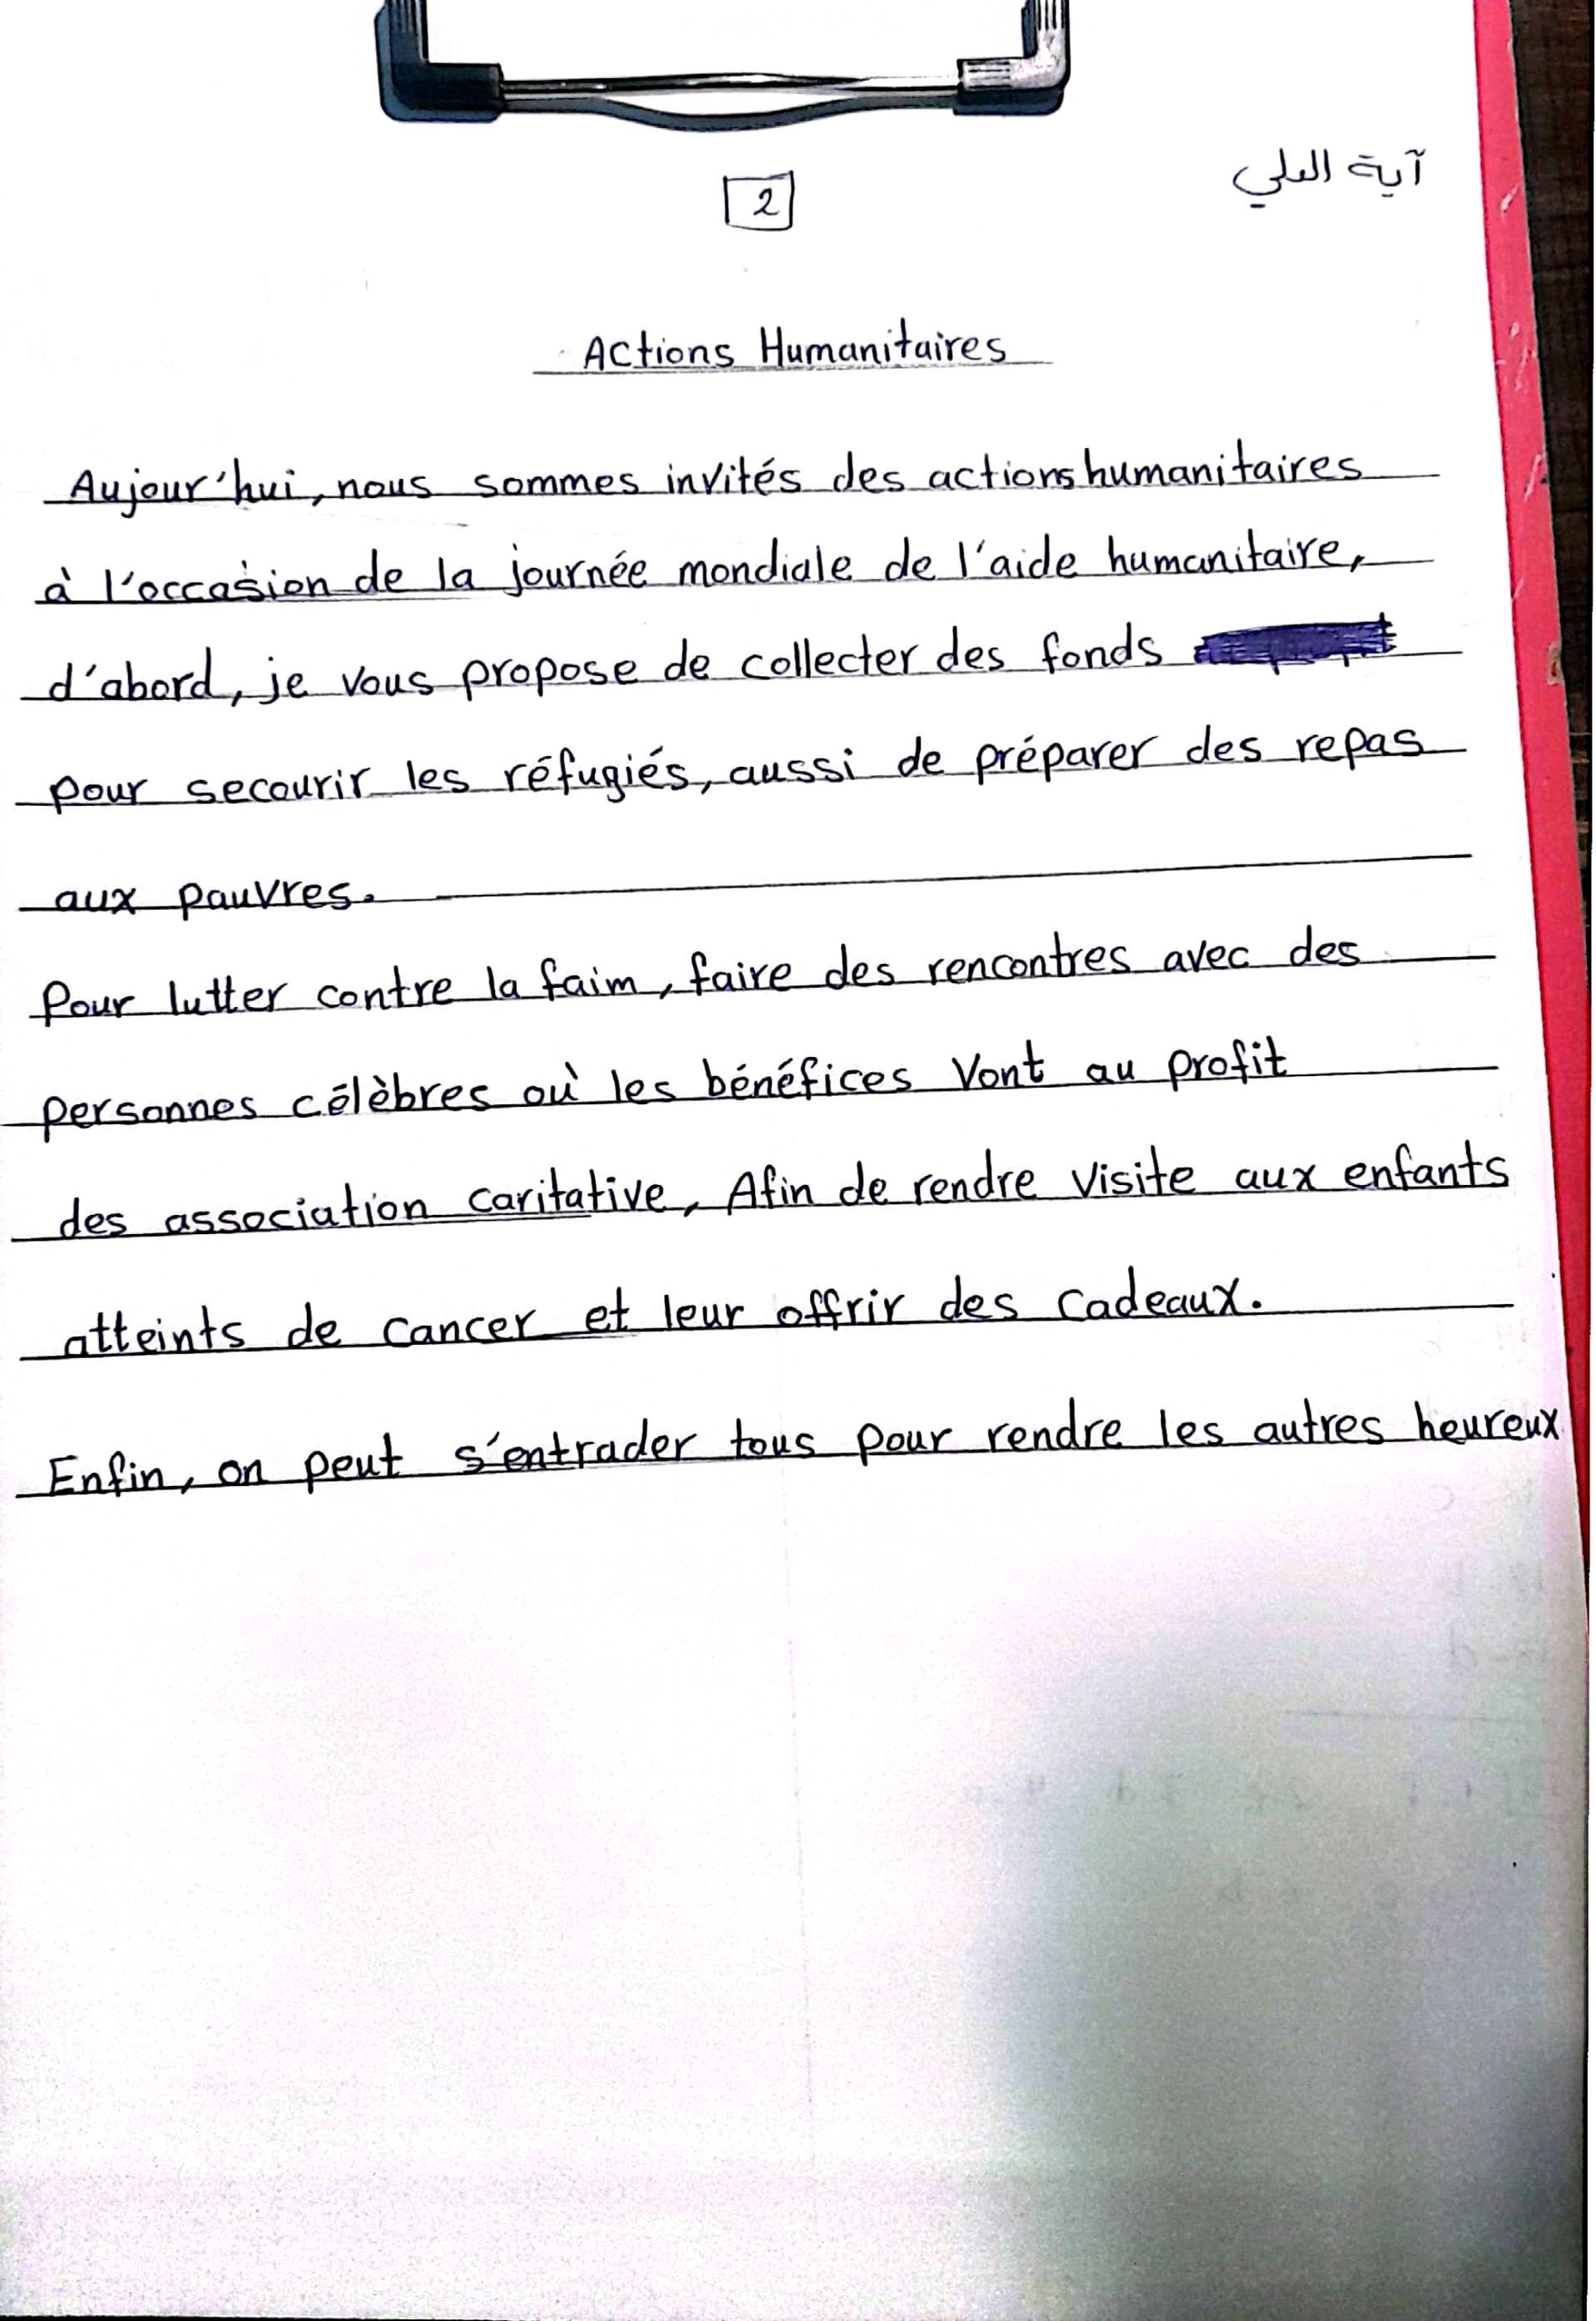 آية العلي
2
Actions Humanitaires
Aujour'hui, nous sommes invités des actions humanitaires
à l'occasion de la journée mondiale de l'aide humanitaire,
d'abord, je vous propose de collecter des fonds
pour secourir les réfugiés, aussi de préparer des repas
aux pauvres.
Pour lutter contre la faim, faire des rencontres avec des
personnes célèbres où les bénéfices vont au profit
des association caritative, Afin de rendre visite aux enfants
atteints de cancer et leur offrir des cadeaux.
Enfin, on peut s'entrader tous pour rendre les autres heureux